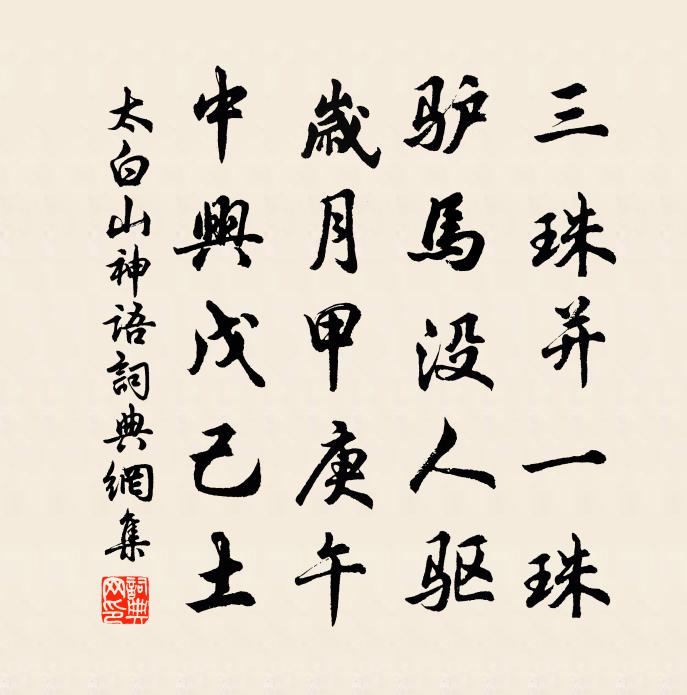 三珠并一珠
驴馬没人驱
歲月甲庚午
中興戊己土
太白山神语詞典網集
詞典网印